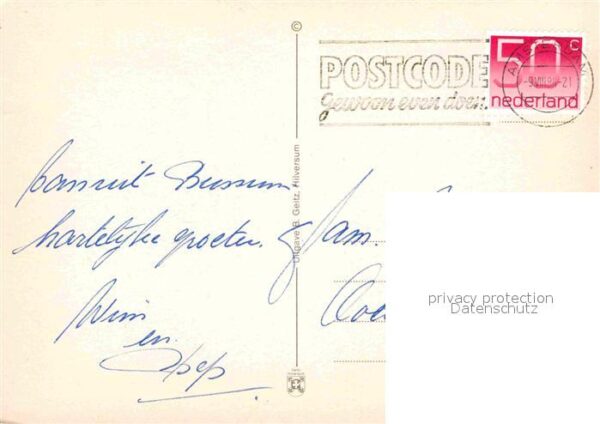 ©
POSTCODE
gewoon even doen.
50 c
nederland
Vanuit Bussum
hartelijke groeten.
Wim
en
Uitgave B. Geitz, Hilversum
Fam
privacy protection
Datenschutz